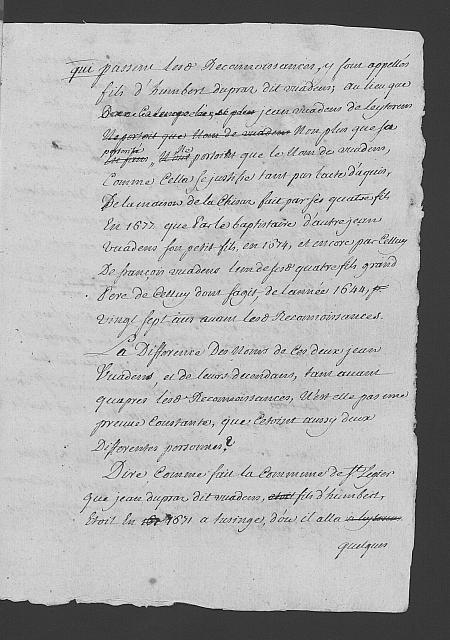 qui passent lesd Reconnoissances, y sont appellés
fils d'humbert dupraz dit vuadens; au lieu que
jean vuadens de leyterens
Ne portoit que Nom de vuadens Non plus que sa
posterité portoit que le Nom de vuadens,
Comme Cella se justifie tant par l'acte d'aquis,
De la maison de la Chiesaz fait par ses quatre fils
En 1677. que Par le baptistaire d'autre jean
vuadens son petit fils, en 1674, et encore par Celluy
De françois vuadens l'un desd quatre fils grand
Pere de Celluy dont s'agit, de l'année 1644,
vingt sept ans avant lesd Reconnoissances.
La Difference Des Noms de Ces deux jean
Vuadens, et de leurs decendans, tant avant
qu'apres lesd Reconnoissances, N'est elle pas une
preuve Constante, que C'etoint aussy deux
Differentes personnes?
Dire, Comme fait la Commune de St Legier
que jean dupraz dit vuadens, etoit fils d'humbert,
Etoit En 1671 a turinge, d'ou il alla
quelques